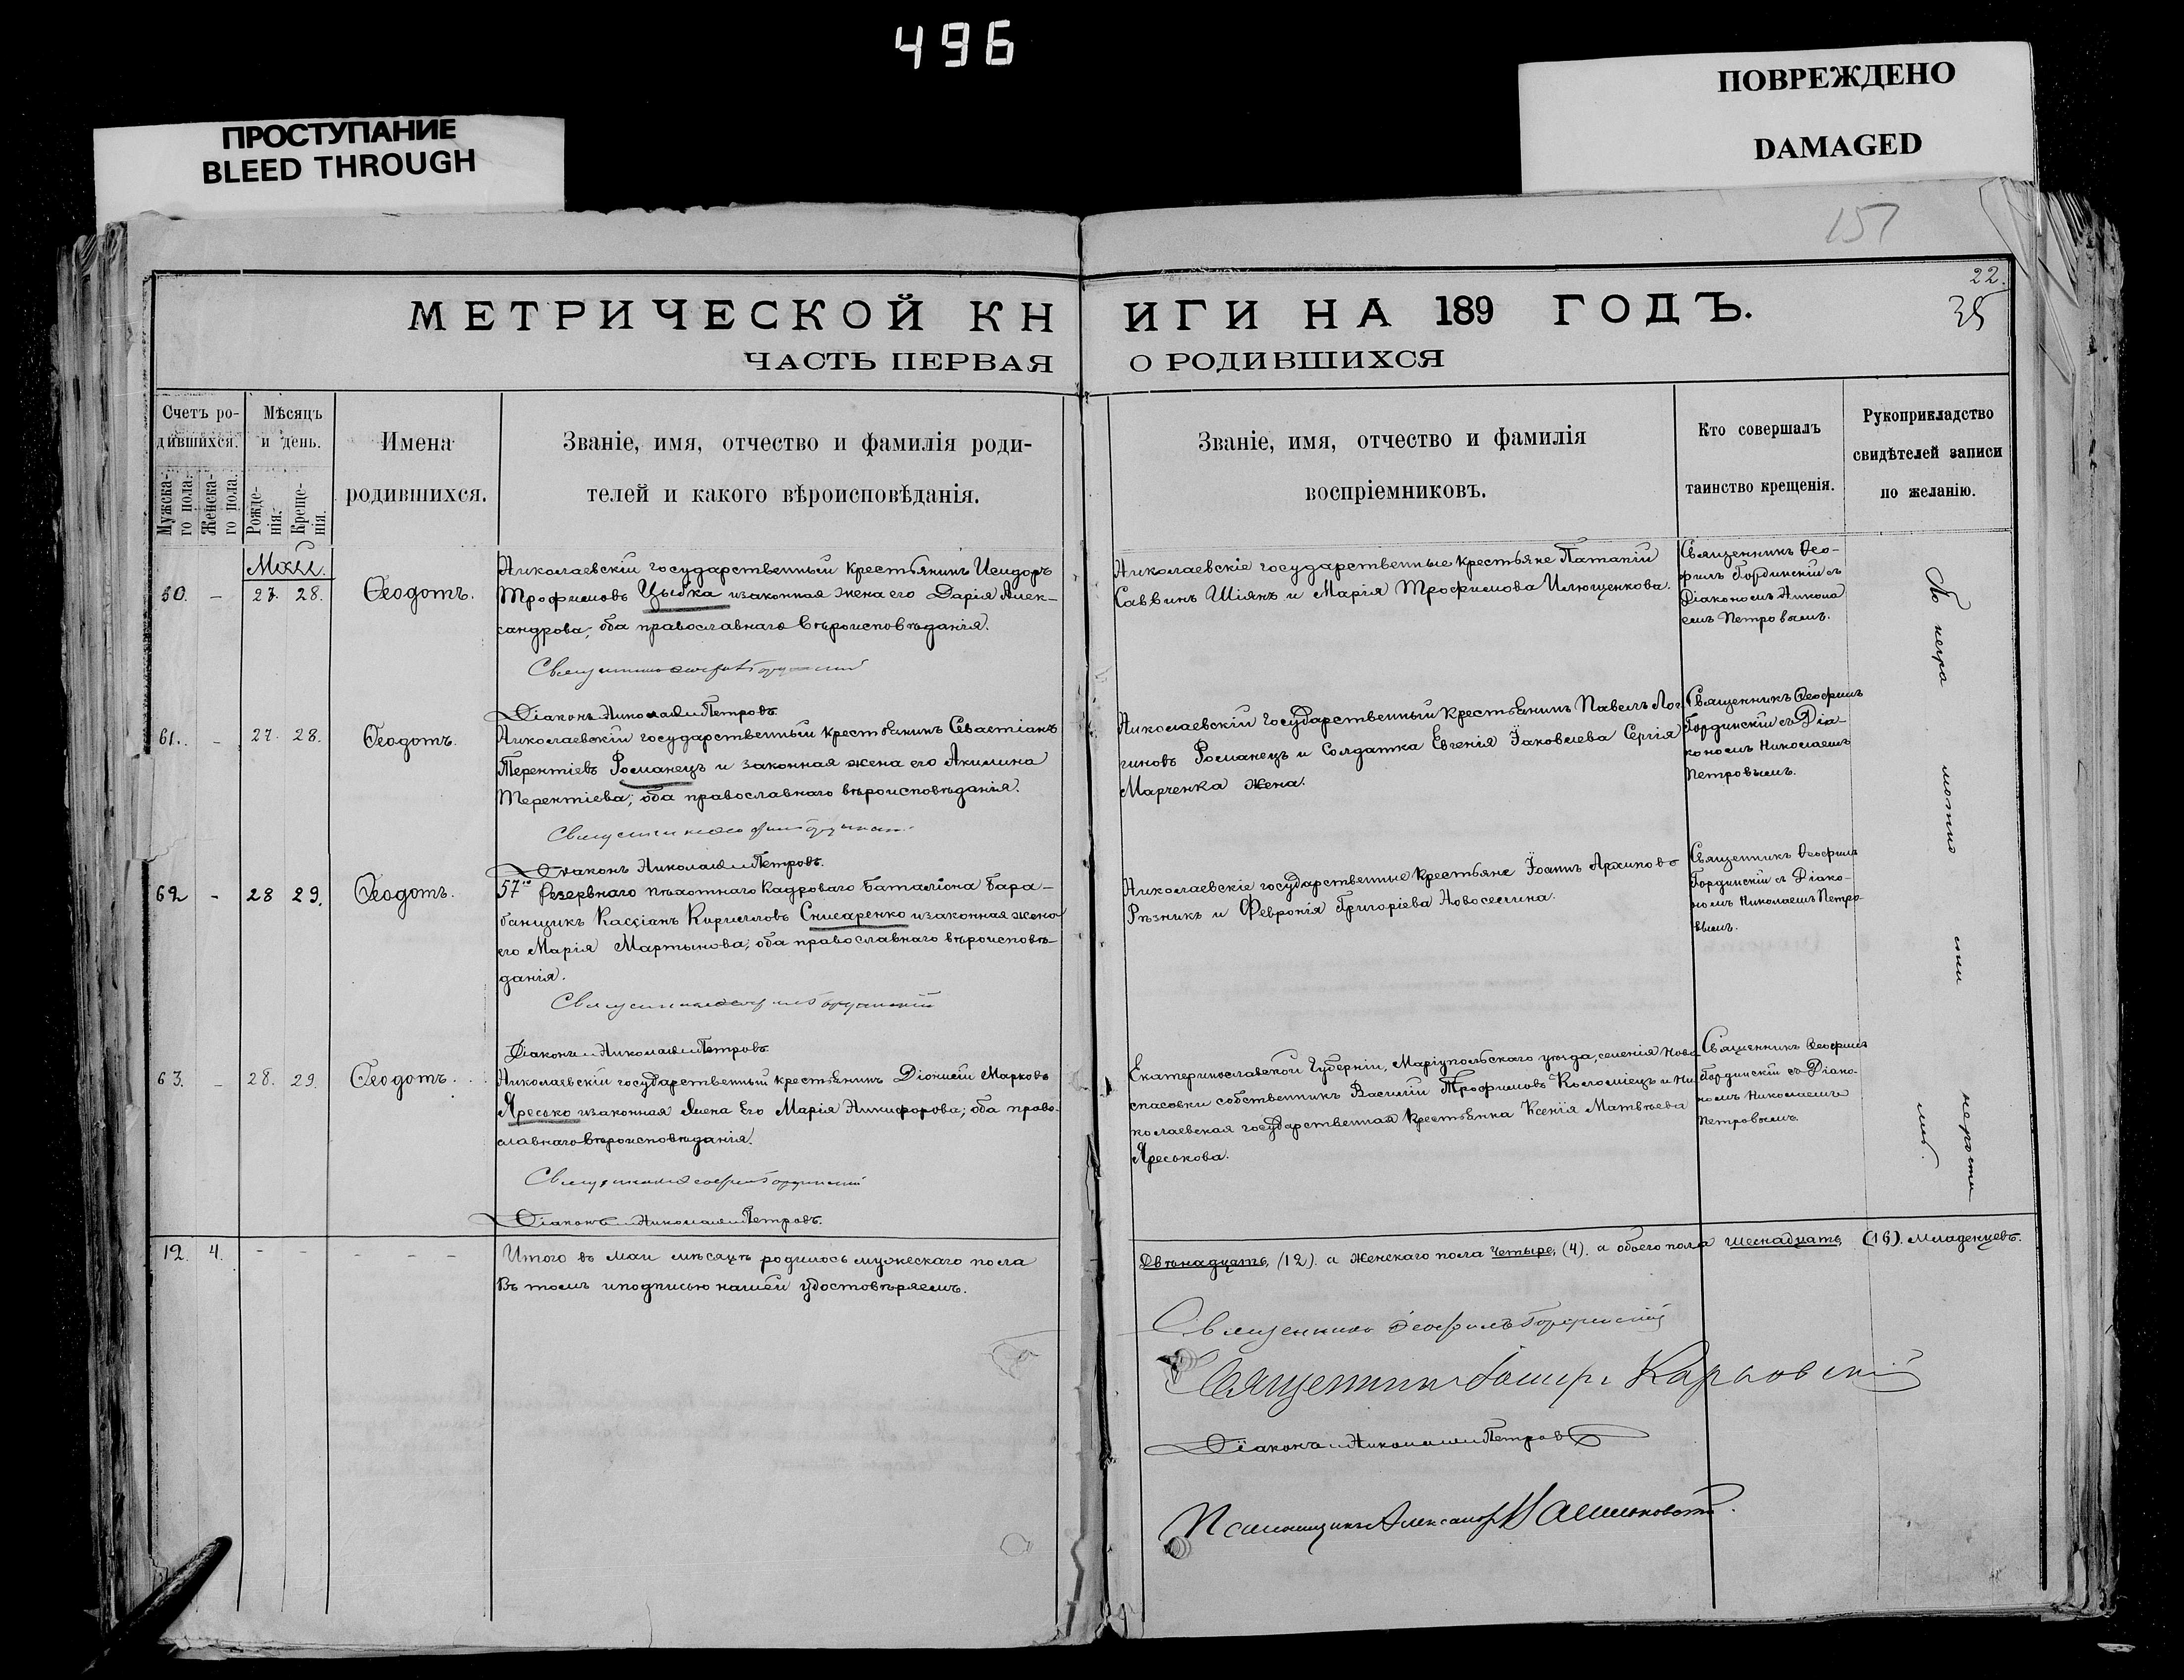 496
ПРОСТУПАНИЕ
BLEED THROUGH
ПОВРЕЖДЕНО
DAMAGED
157
22.
35
МЕТРИЧЕСКОЙ КНИГИ НА 189 ГОДЪ.
ЧАСТЬ ПЕРВАЯ О РОДИВШИХСЯ
Счетъ ро-
дившихся.
Мужска-
го пола.
Женска-
го пола.
Мѣсяцъ
и день.
Рожде-
нія.
Креще-
нія.
Имена
родившихся.
Званіе, имя, отчество и фамилія роди-
телей и какого вѣроисповѣданія.
Званіе, имя, отчество и фамилія
воспріемниковъ.
Кто совершалъ
таинство крещенія.
Рукоприкладство
свидѣтелей записи
по желанію.
Май.
60. - 27. 28.
Ѳеодотъ.
Николаевскій государственный крестьянинъ Исидоръ
Трофимовъ Цыбка и законная жена его Дарія Алек-
сандрова; оба православнаго вѣроисповѣданія.
Діаконъ Николай Петровъ
Николаевскіе государственные крестьяне Патапій
Саввинъ Шіянъ и Марія Трофимова Илющенкова.
Священникъ Ѳео-
филъ Гординскій съ
Діакономъ Никола
емъ Петровымъ.
61. - 27. 28.
Ѳеодотъ.
Николаевскій государственный крестьянинъ Севастіанъ
Терентіевъ Романецъ и законная жена его Акилина
Терентіева; оба православнаго вѣроисповѣданія.
Діаконъ Николай Петровъ.
Николаевскій государственный крестьянинъ Павелъ Лог
гиновъ Романецъ и Солдатка Евгенія Іаковлева Сергія
Марченка жена.
Священникъ Ѳеофилъ
Гординскій съ Діа-
кономъ Николаемъ
Петровымъ.
62 - 28 29.
Ѳеодотъ.
57го Резервнаго пѣхотнаго Кадроваго баталіона бара-
банщикъ Кассіанъ Кирилловъ Снисаренко и законная жена
его Марія Мартынова; оба православнаго вѣроисповѣ-
данія.
Діаконъ Николай Петровъ
Николаевскіе государственные крестьяне Іоаннъ Архиповъ
Рѣзникъ и Февронія Григоріева Новоселина.
Священникъ Ѳеофилъ
Гординскій съ Діако-
номъ Николаемъ Петро-
вымъ.
63. - 28. 29.
Ѳеодотъ.
Николаевскій государственный крестьянинъ Діонисій Марковъ
Яресько и законная жена его Марія Никифорова; оба право-
славнаго вѣроисповѣданія.
Діаконъ Николай Петровъ.
Екатеринославской Губерніи, Маріупольскаго уѣзда, селенія Ново
спасовки собственникъ Василій Трофимовъ Коломіецъ и Ни
колаевская государственная крестьянка Ксенія Матвѣева
Яреськова.
Священникъ Ѳеофилъ
Гординскій съ Діако-
номъ Николаемъ
Петровымъ.
12. 4. - - - - -
Итого въ маи мѣсяцѣ родилось мужескаго пола
Двѣнадцать (12). а женскаго пола четыре, (4). а обоего пола шеснадцать (16). младенцевъ.
Въ томъ и подписью нашей удостовѣряемъ.
Священникъ Ѳеофилъ Гординскій
Священникъ Карповскій
Діаконъ Николай Петровъ
Псаломщикъ Александръ